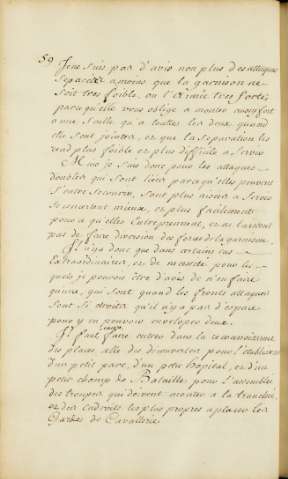 59
Je ne suis pas d'avis non plus des attaques
separées a moins que la garnison ne
soit tres foible, ou l'armée tres forte,
parce qu'elle vous oblige a monter aussy fort
a une seulle qu'a toutes les deux quand
elles sont jointes, et que la separation les
rend plus foible et plus difficile a servir
Mais je suis donc pour les attaques
doubles qui sont liées parce qu'elles peuvent
s'entre secourir, sont plus aisées a servir
se concertent mieux, et plus facilement
pour ce qu'elles entreprennent, et ne laissent
pas de faire diversion des forces de la garnison.
Il n'y a donc que dans certains cas
extraordinaires, et de necessité pour les
quels je pourrois être d'avis de n'en faire
qu'une, qui sont quand les fronts attaqués
sont si etroits qu'il n'y a pas d'espace
pour y en pouvoir enveloper deux.
Il faut faire entrer dans la reconnoissance
des places, celle des
d'un petit parc, d'un petit hôpital, et d'un
petit champ de Bataille, pour l'assemblée
des troupes qui doivent monter a la tranchée,
et des endroits les plus propres a placer les
Gardes de Cavallerie.